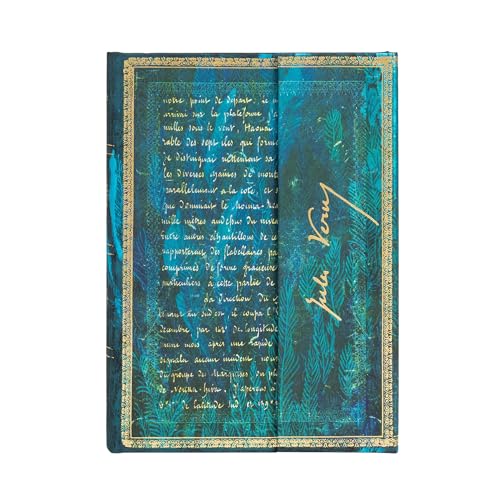 notre point de départ. Je m
arrivai sur la plateforme j'a
milles sous le vent, Haouai
rable des sept iles qui forme
Je distinguai nettement sa
les diverses chaînes de mont
parallèlement à la côte, et s
que dominait le Mouna-Rea
mille mètres au dessus du nivea
entre autres échantillons de ce
rapportèrent des flabellaires pa
comprimés de forme gracieuse
particuliers à cette partie de
La direction du
tenant au sud est. il coupa l'
décembre par 142° de longitude
même mois, après une rapide
signala aucun incident, nous
du groupe de Marquises. au pl
de Nouka-hiva. J'aperçus à
8° de latitude sud et 139°
Jules Verne